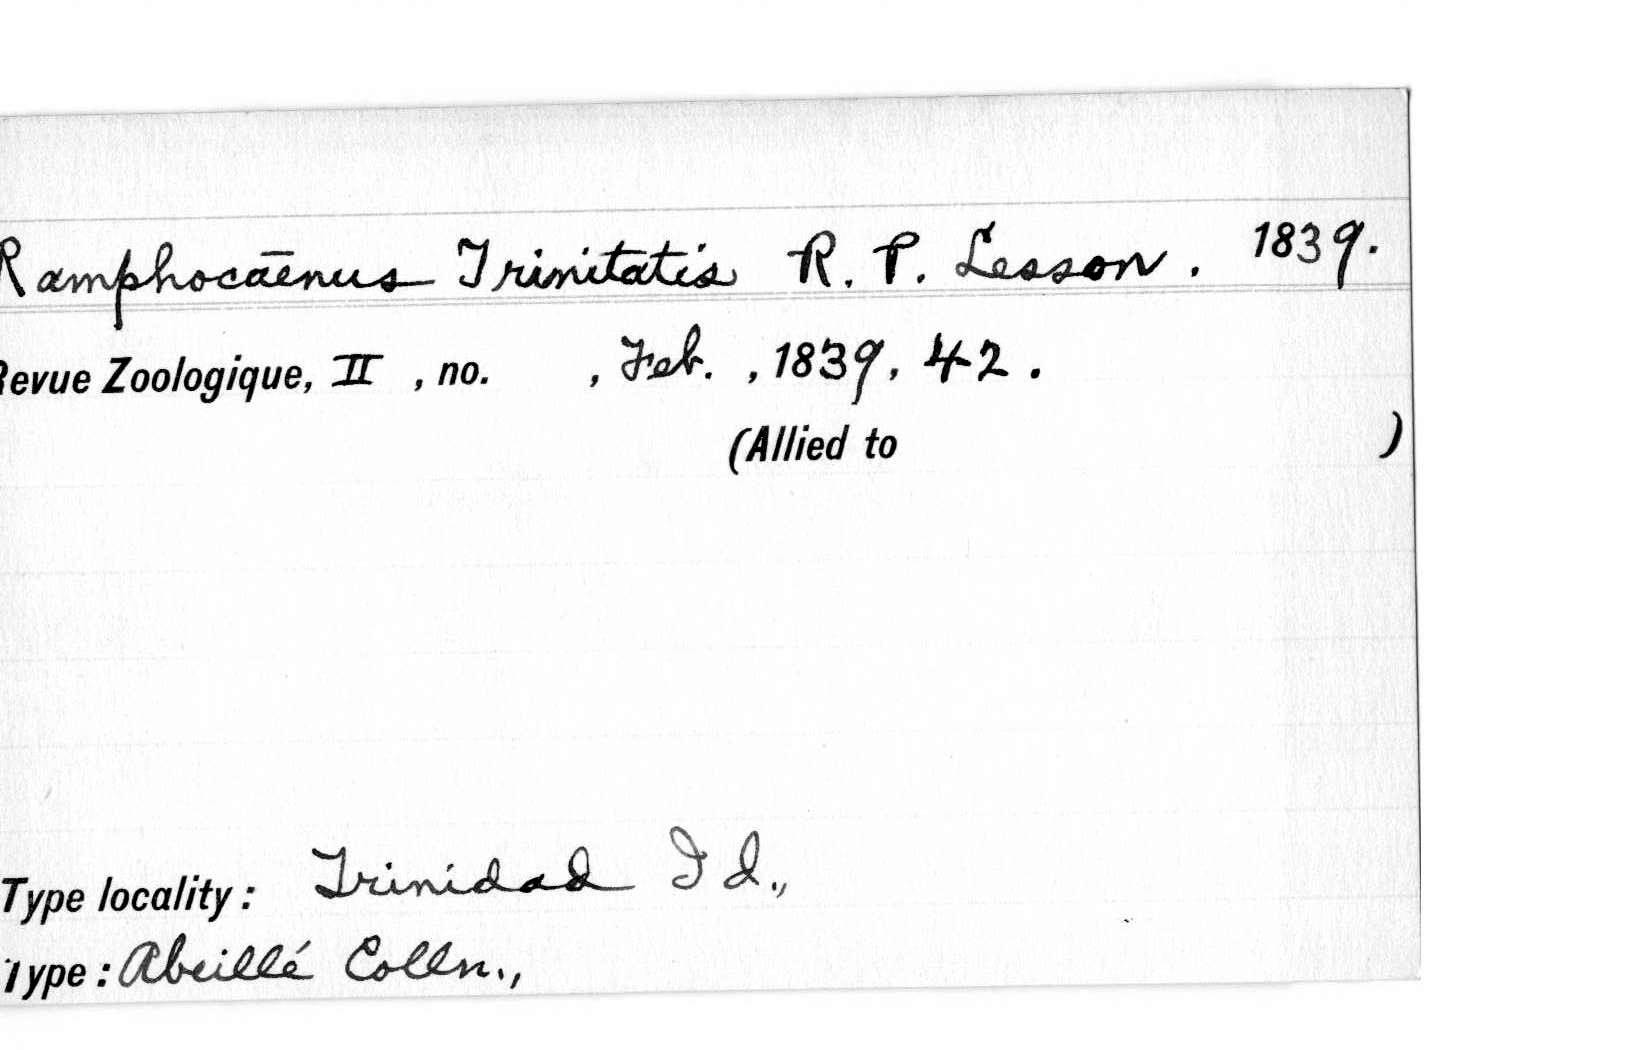 Ramphocaēnus Trinitatis R. P. Lesson. 1839.
Revue Zoologique, II , no. , Feb. , 1839, 42.
(Allied to )
Type locality: Trinidad Id.,
Type: Abeillé Colln.,